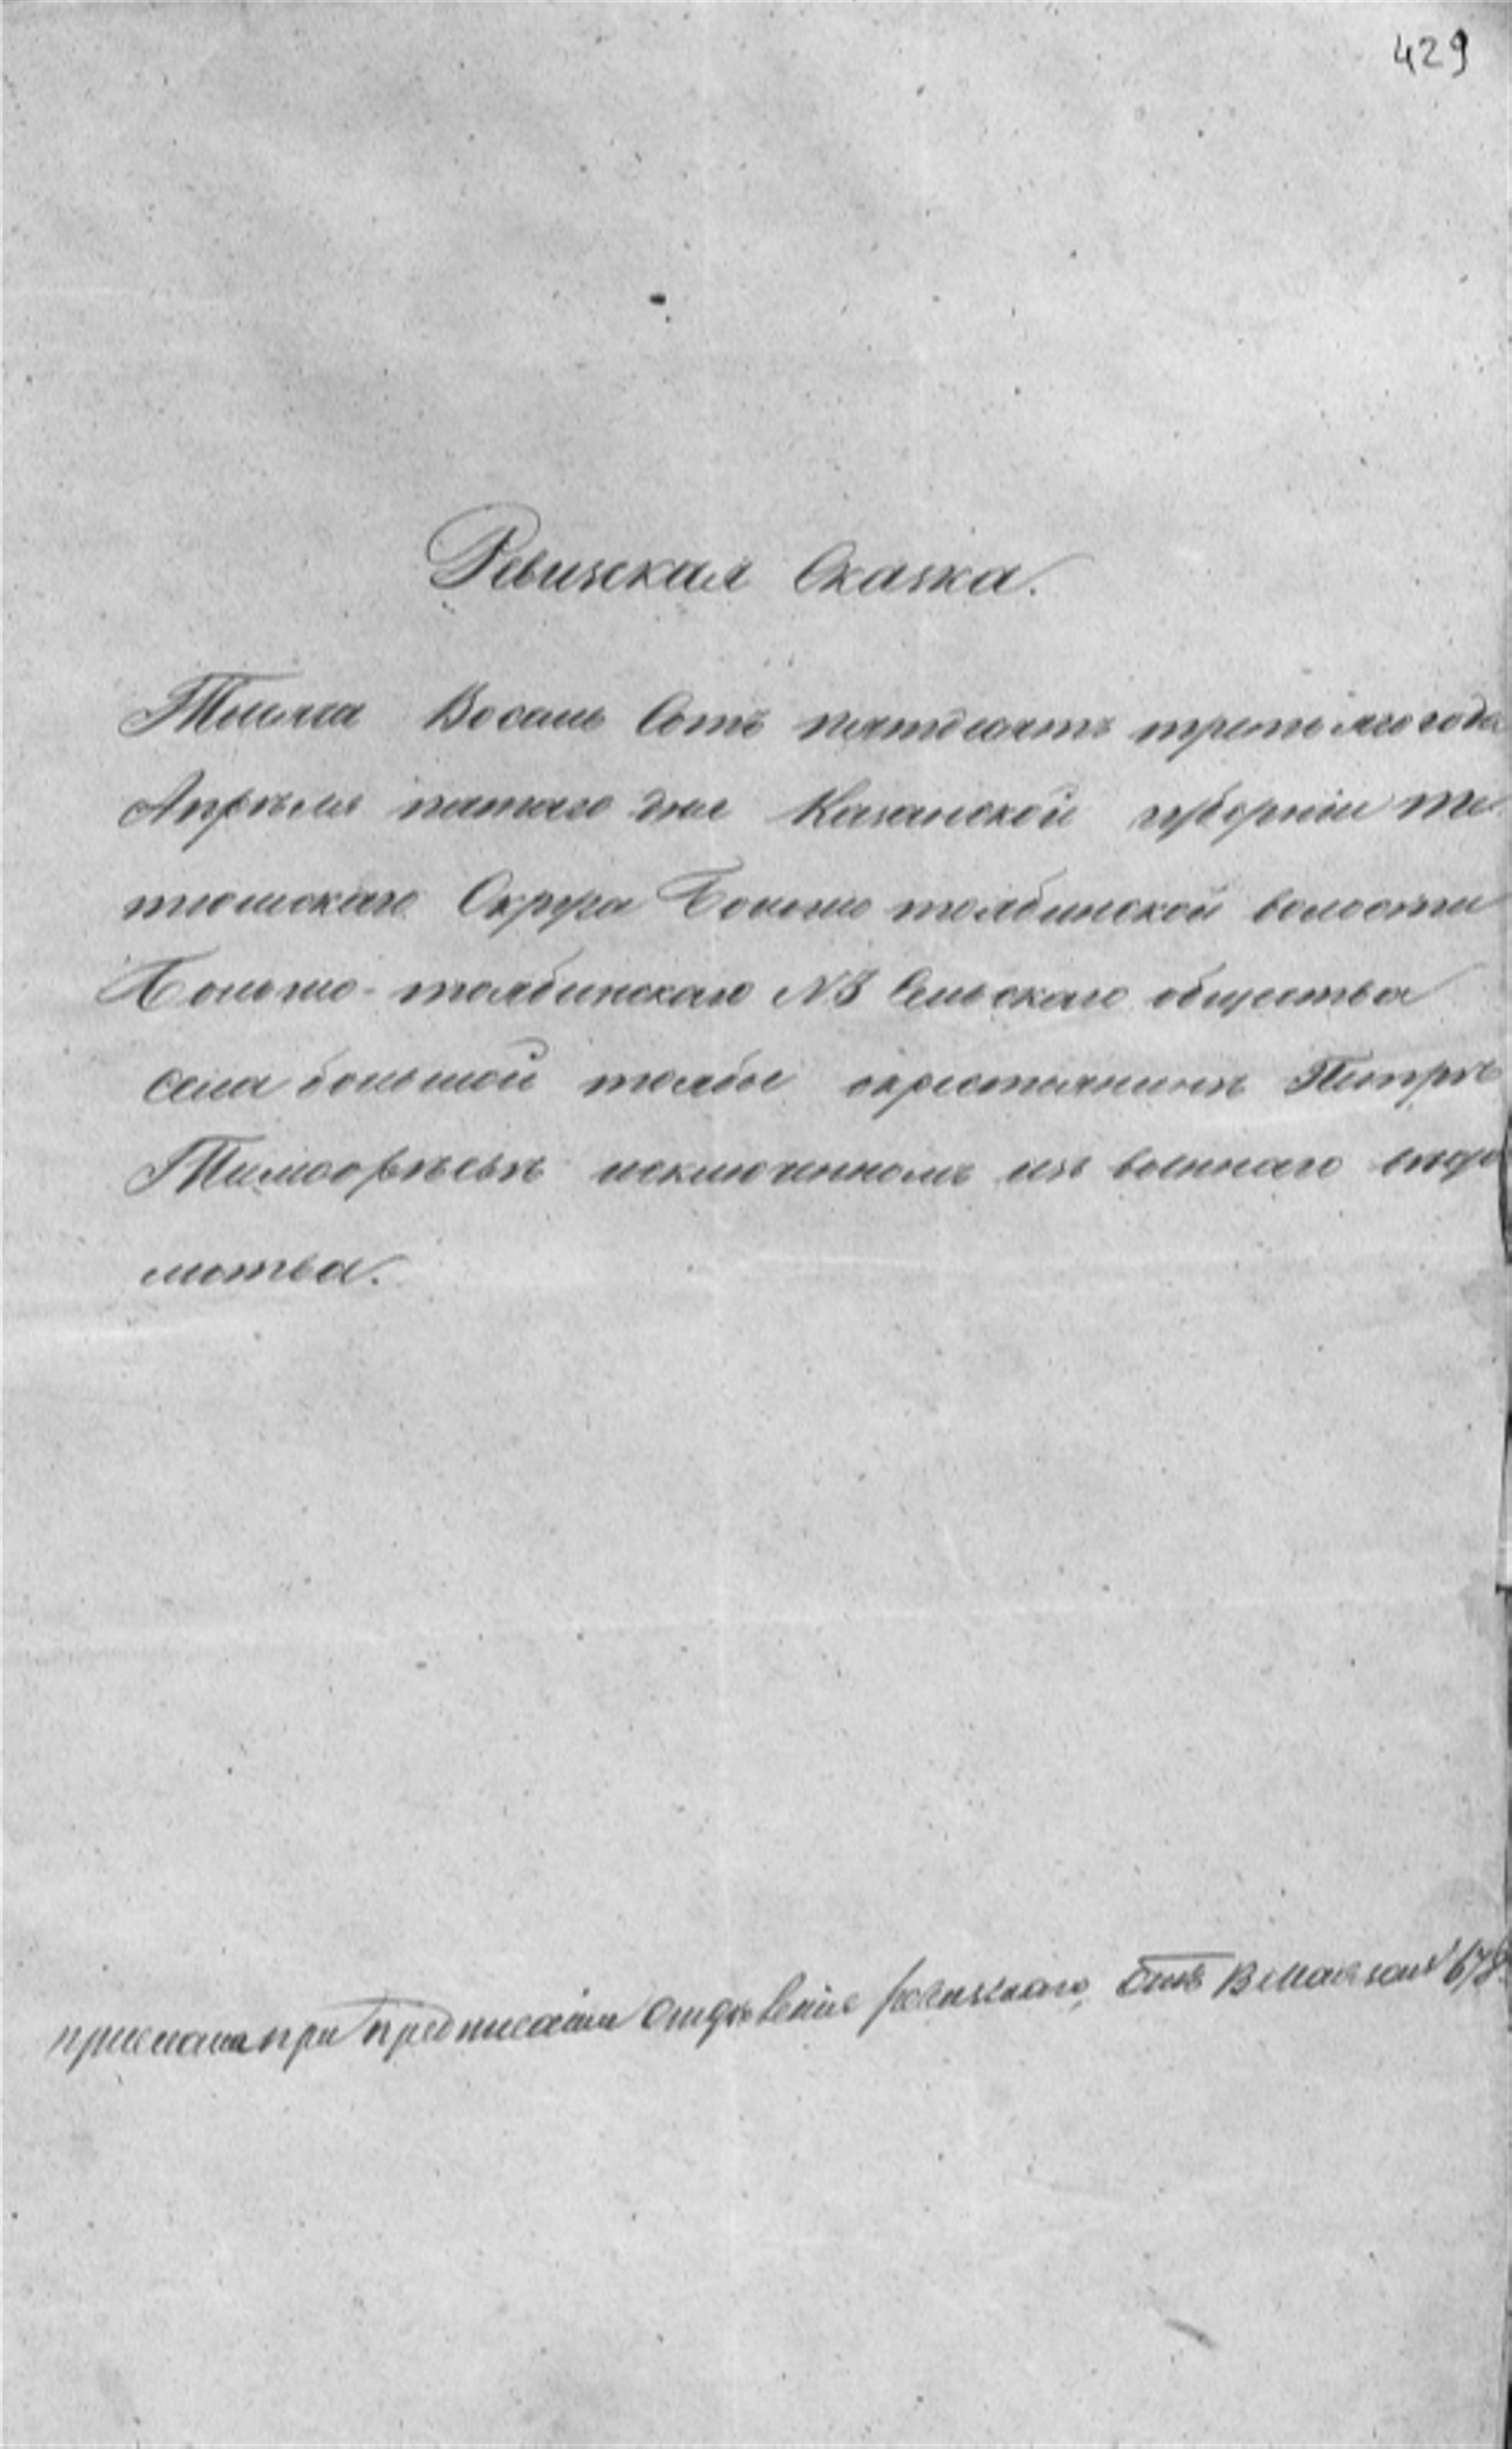 429
Ревизская Сказка.
Тысяча Восемь Сотъ пятдесятъ третьяго года
Апрѣля пятаго дня Казанской губерніи те-
тюшскаго Округа Больше тоябинской волости
Больше-тоябинскаго №3 Сельскаго общества
села большой тоябы окрестьянинѣ Петрѣ
Тимофѣевѣ исключенномъ изъ военнаго
при предписаніи ревизскаго